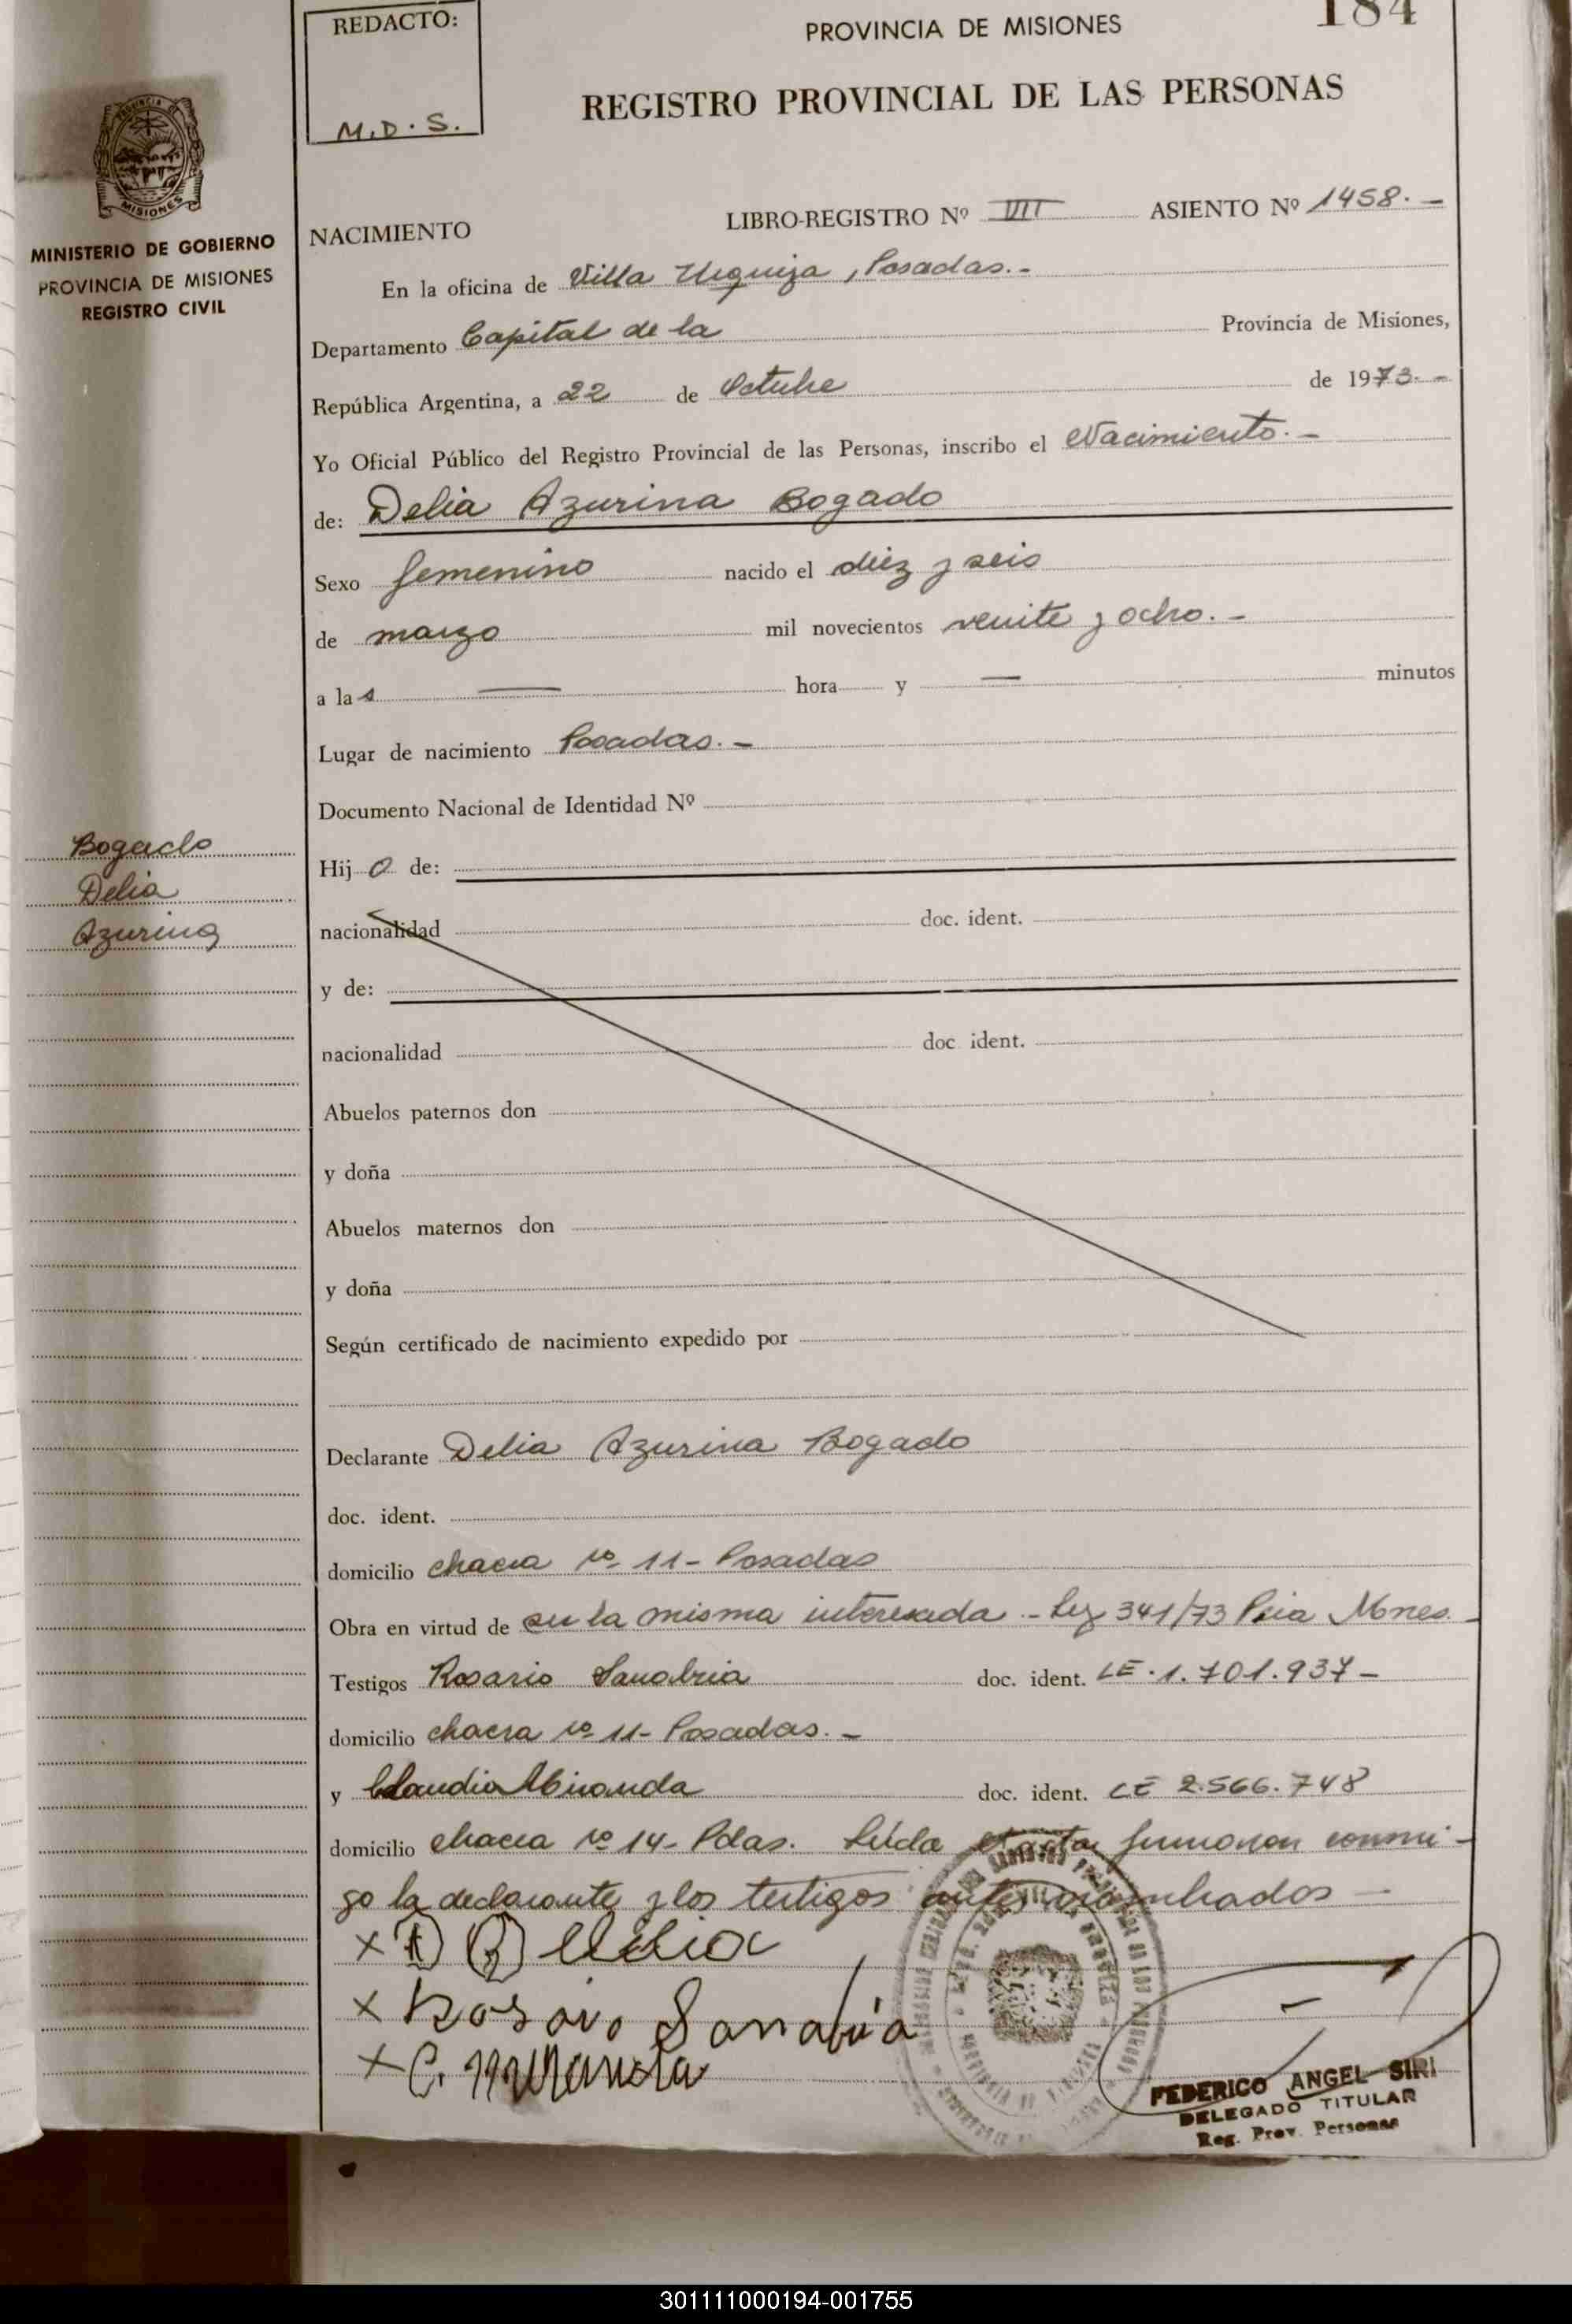 184
REDACTO:
M.D.S.
PROVINCIA DE MISIONES
REGISTRO PROVINCIAL DE LAS PERSONAS
MISIONES
MINISTERIO DE GOBIERNO
PROVINCIA DE MISIONES
REGISTRO CIVIL
NACIMIENTO LIBRO-REGISTRO Nº VII ASIENTO Nº 1458.-
En la oficina de Villa Urquiza, Posadas.-
Departamento Capital de la Provincia de Misiones,
República Argentina, a 22 de Octubre de 1973.-
Yo Oficial Público del Registro Provincial de las Personas, inscribo el Nacimiento.-
de: Delia Azurina Bogado
Sexo femenino nacido el diez y seis
de marzo mil novecientos veinte y ocho.-
a las — hora y — minutos
Lugar de nacimiento Posadas.-
Documento Nacional de Identidad Nº
Bogado
Delia
Azurina
Hij o de:
nacionalidad doc. ident.
y de:
nacionalidad doc. ident.
Abuelos paternos don
y doña
Abuelos maternos don
y doña
Según certificado de nacimiento expedido por
Declarante Delia Azurina Bogado
doc. ident.
domicilio chacra nº 11- Posadas
Obra en virtud de ser la misma interesada - Ley 341/73 Pcia Mnes.
Testigos Rosario Sanabria doc. ident. LE.1.701.937-
domicilio chacra nº 11- Posadas.-
y Claudia Miranda doc. ident. LE 2.566.748
domicilio chacra nº 14- Pdas. Leída el acta firmaron conmi-
go la declarante y los testigos antes nombrados —
x D B Delia
x Rosario Sanabria
x C. Miranda
FEDERICO ANGEL SIRI
DELEGADO TITULAR
Reg. Prov. Personas
301111000194-001755